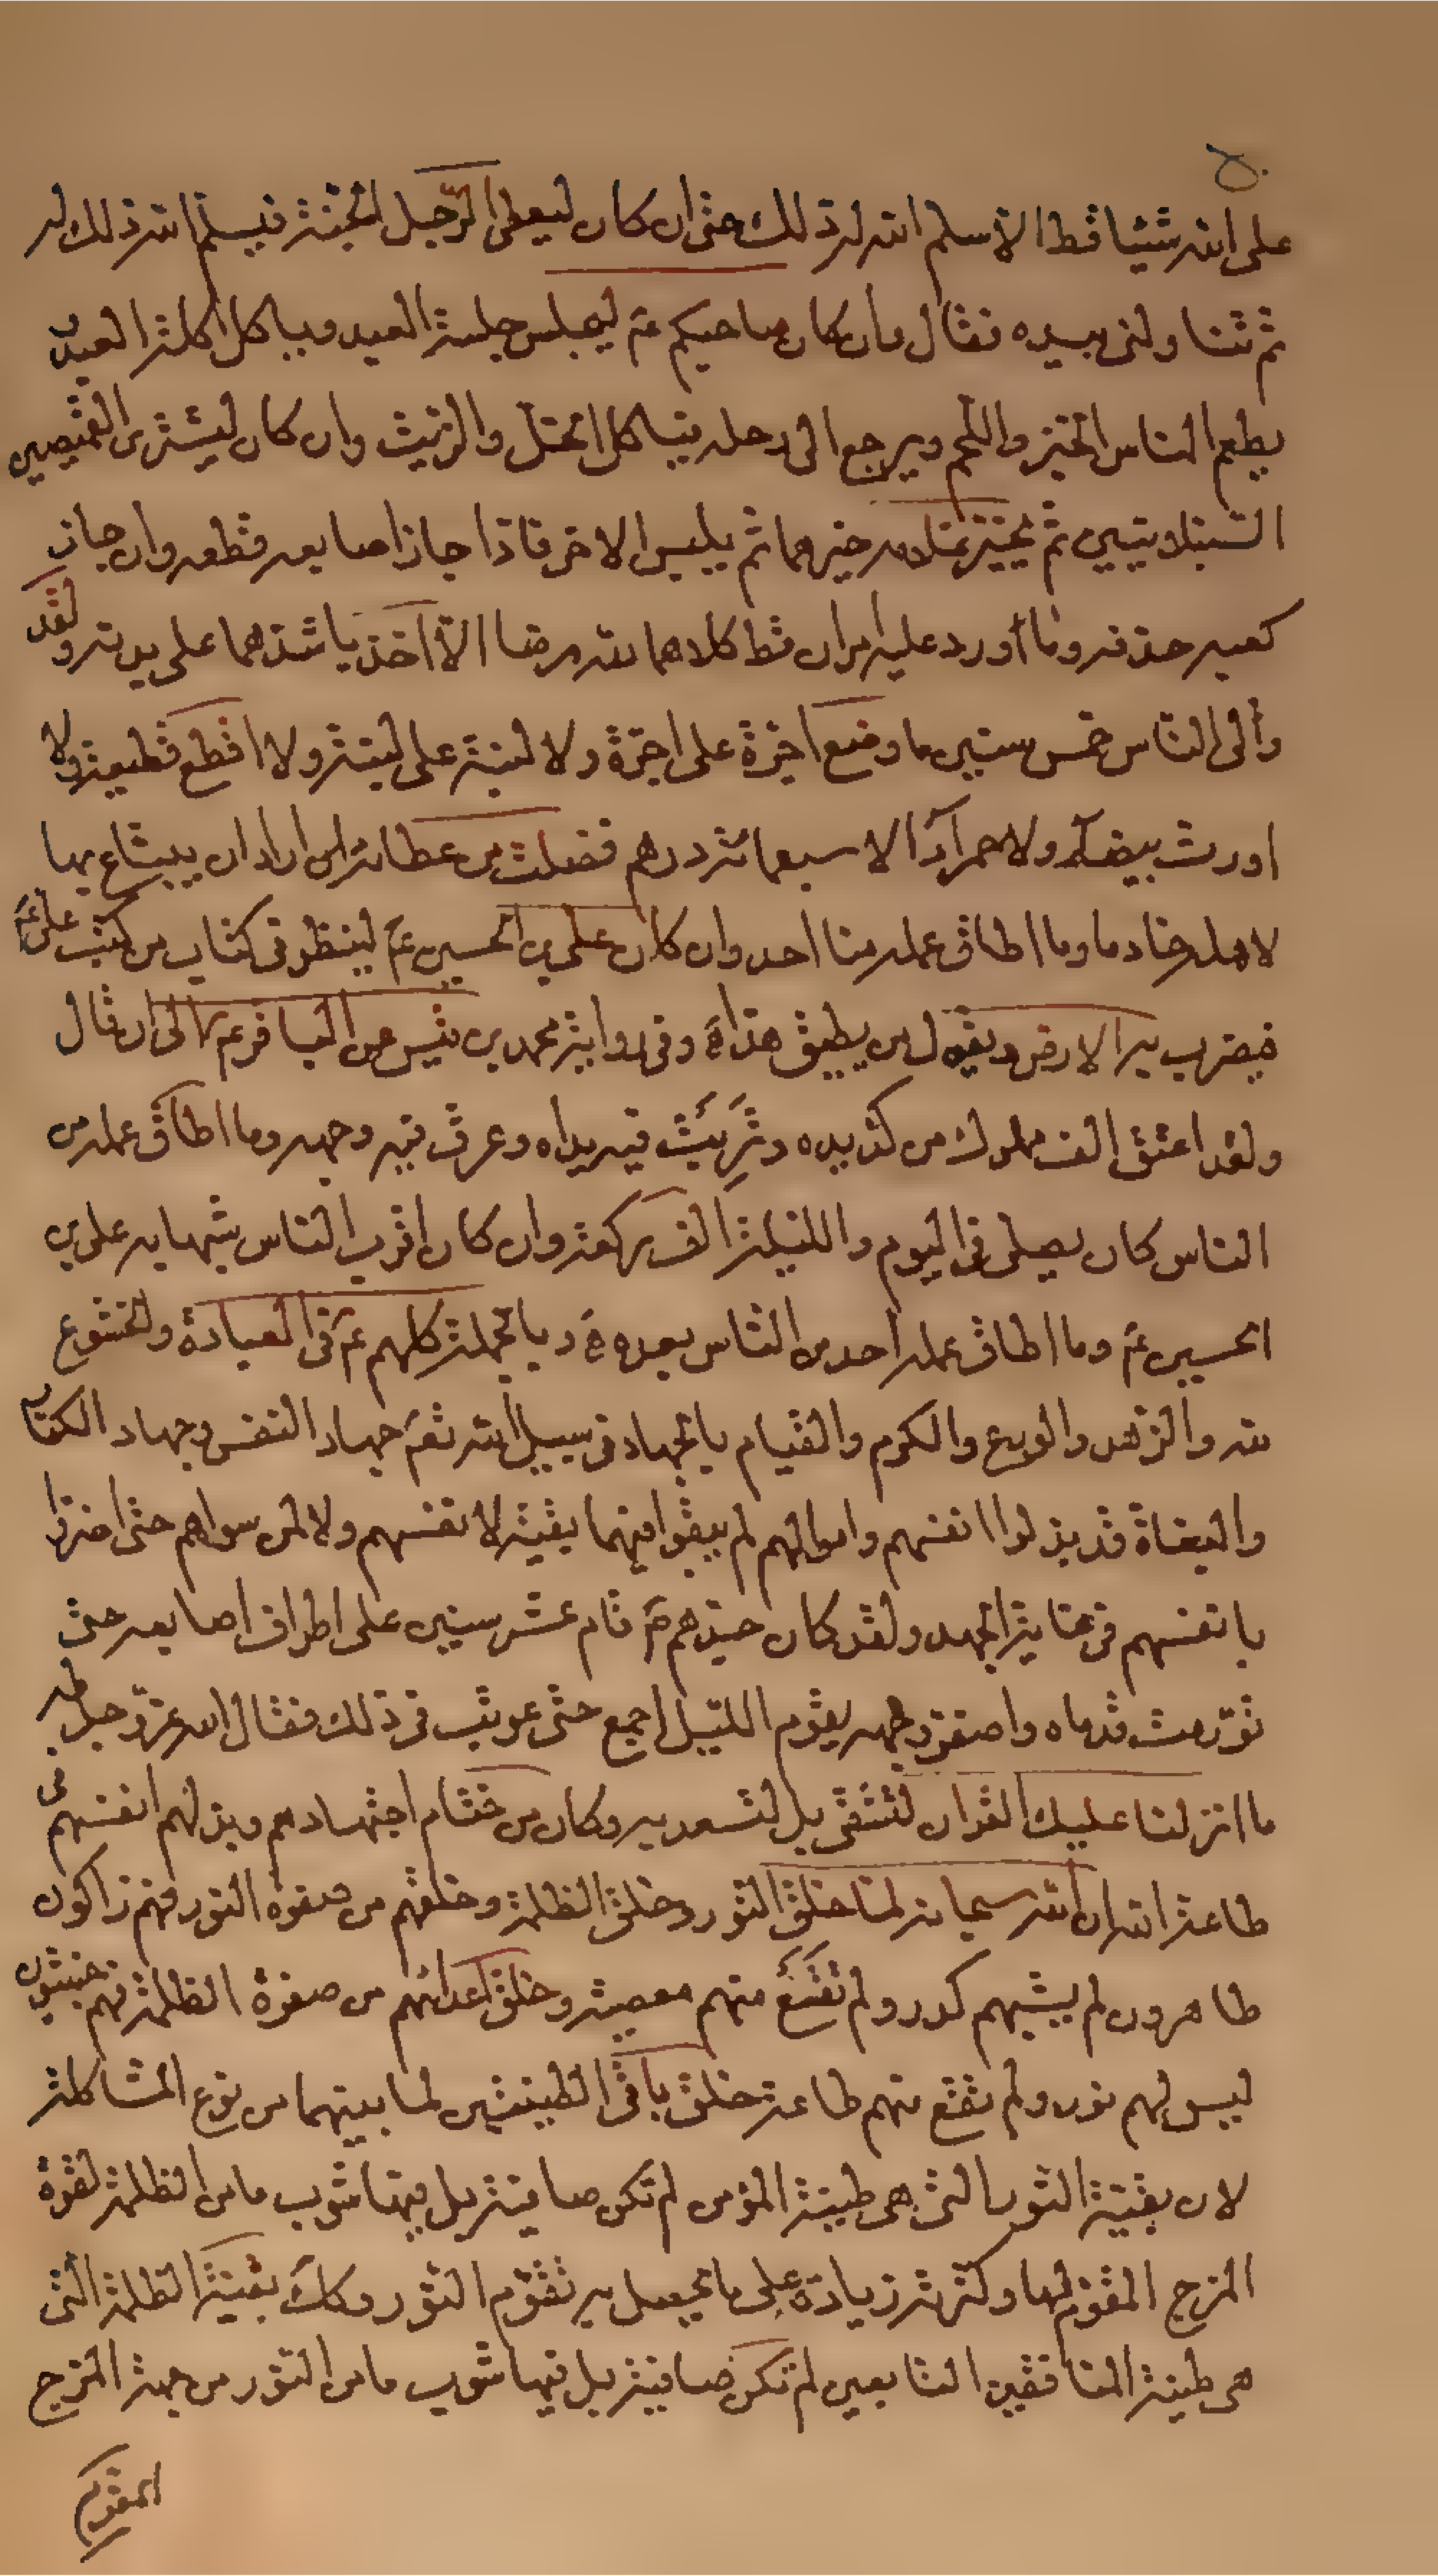 على الله شيئا قط الا سلم الله له ذلك حتى ان كان ليعطى الرجل الجنة فيسلم الله ذلك له
ثم تناولنى بيده فقال وان كان صاحبكم عم ليجلس جلسة العبد وياكل اكلة العبد
يطعم الناس الخبز واللحم ويرجع الى رحله فياكل الخل والزيت وان كان ليشترى القميصين
السنبلانيين ثم يخير غلامه خيرهما ثم يلبس الاخر فاذا جاز اصابعه قطعه وان جاز
كعبه حذفه وما أورد عليه امران قط كلاهما لله رضا الا اخذ باشدهما على بدنه ولقد
ولى الناس خمس سنين ما وضع اجرة على اجرة ولا لبنة على لبنة ولا اقطع قطيعة ولا
اورث بيضآء ولا حمرآء الا سبعمائة درهم فضلت من عطائه اراد ان يبتاع بها
لاهله خادما وما اطاق عمله منا احد وان كان على بن الحسين عم لينظر فى كتاب من كتب على عم
فيضرب به الارض ويقول من يطيق هذا وفى رواية محمد بن قيس عن الباقر عم الى ان قال
ولقد اعتق الف مملوك من كد يده وتربت فيه يداه وعرق فيه وجهه وما اطاق عمله من
الناس كان يصلى فى اليوم والليلة الف ركعة وان كان اقرب الناس شبها به على بن
الحسين عم وما اطاق عمله احد من الناس بعده وبالجملة كلهم عم فى العبادة والخشوع
لله والزهد والورع والكرم والقيام بالجهاد فى سبيل الله نعم جهاد النفس وجهاد الكفار
والبغاة قد بذلوا انفسهم واموالهم لم يبقوا فيهما بقية لانفسهم ولا لمن سواهم حتى اضروا
بانفسهم فى غاية الجهد ولقد كان جدهم ص قام عشر سنين على اطراف اصابعه حتى
تورمت قدماه واصفر وجهه يقوم الليل اجمع حتى عوتب فى ذلك فقال الله عز وجل طه
ما انزلنا عليك القران لتشقى بل لتسعد به وكان من ختام اجتهادهم وبذلهم انفسهم فى
طاعة الله ان الله سبحانه لما خلق النور وخلق الظلمة وخلقهم من صفوة النور فهم زاكون
طاهرون لم يشبهم كدر ولم تقع منهم معصية وخلق اعدائهم من صفوة الظلمة فهم خبيثون
ليس لهم نور ولم تقع منهم طاعة خلق باقى الطينتين لما بينهما من نوع المشاكلة
لان بقية النور التى هى طينة المؤمن لم تكن صافية بل فيها شوب ما من الظلمة لقوة
المزج المقوم لها وكثرته زيادة على ما يحصل به تقوم النور وكك بقية الظلمة التى
هى طينة المنافقين التابعين لم تكن صافية بل فيها شوب ما من النور من جهة المزج
المقوم